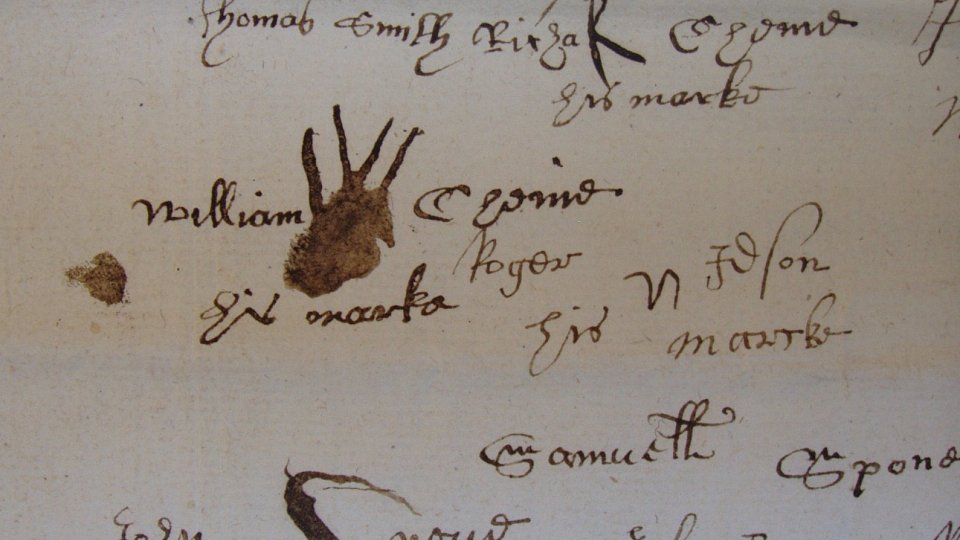 Thomas Smith Richa R Cheine
his marke
William Cheine
his marke
Roger N Idson
his marcke
Samuell Spone